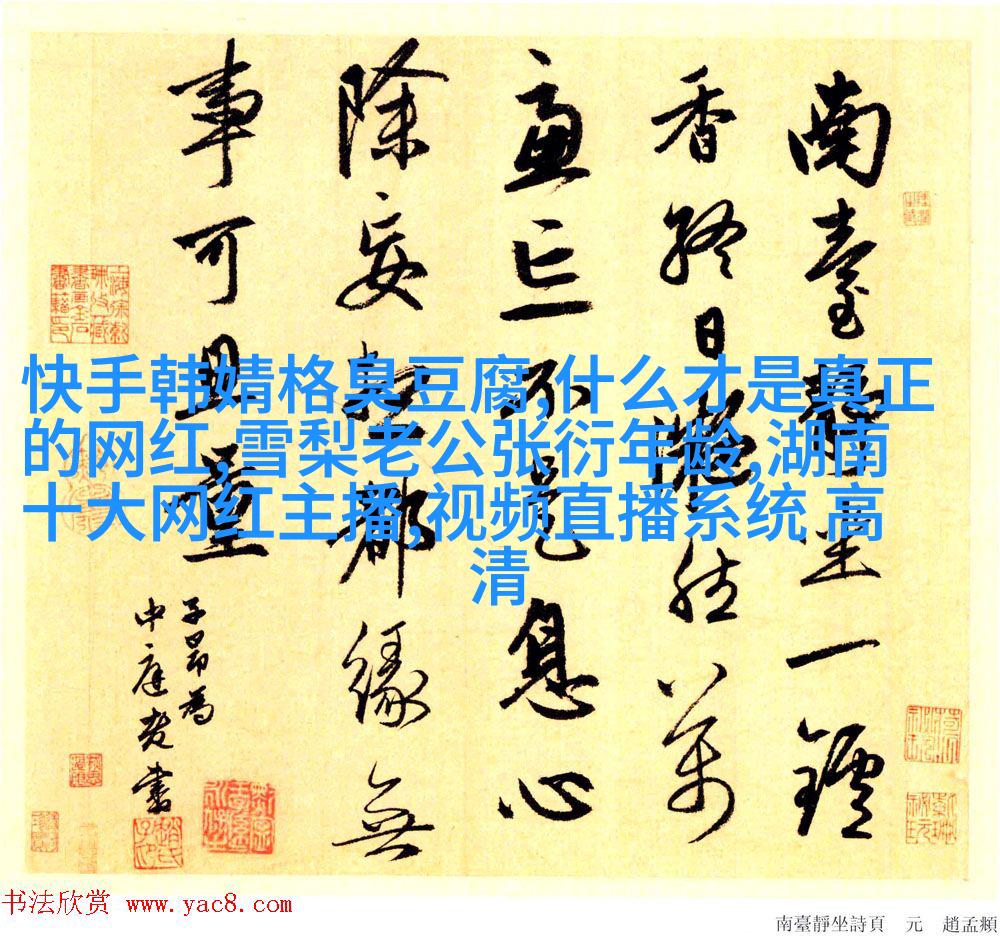 快手韩婧格臭豆腐,什么才是真正
的网红,雪梨老公张衍年龄,湖南
十大网红主播,视频直播系统 高
清
南臺靜坐一鑪
香終日凝然萬
慮亡不是息心
除妄想都緣無
事可思量
子昂為
中庭老書
书法欣赏 www.yac8.com
南臺靜坐詩頁 元 趙孟頫